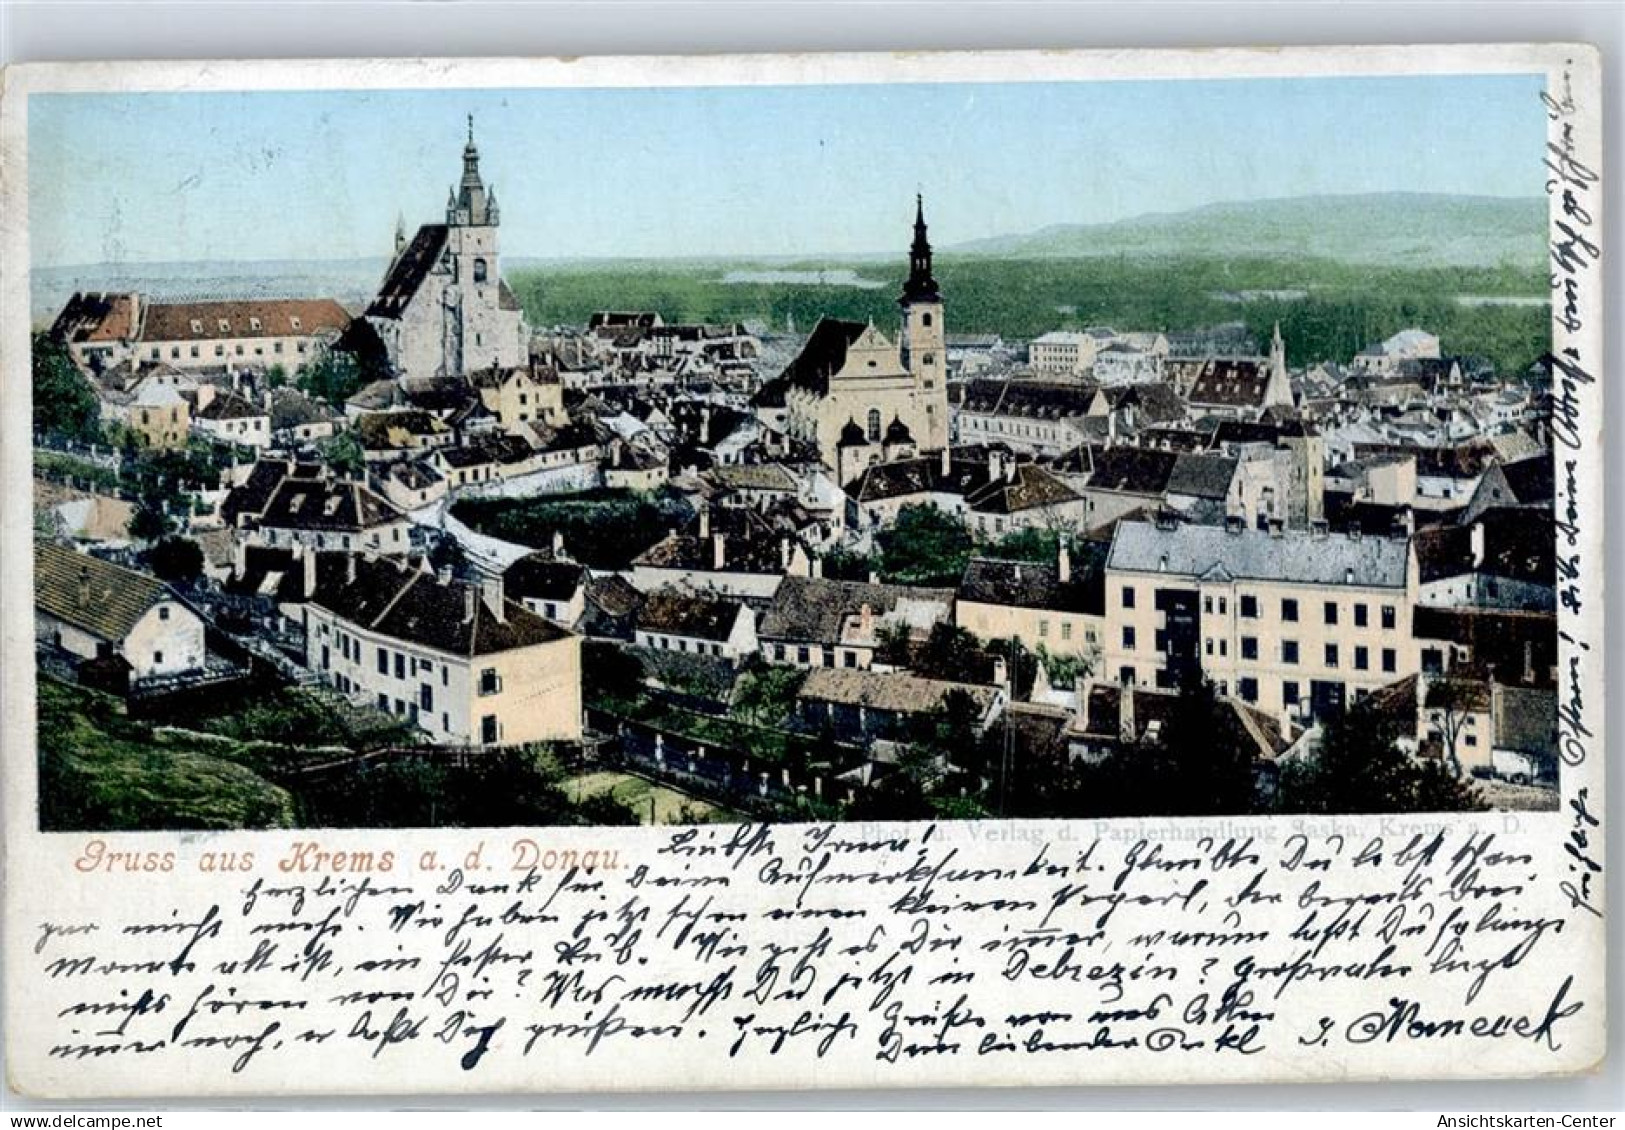 Gruss aus Krems a. d. Donau.
Phot. u. Verlag d. Papierhandlung Saska, Krems a. D.
Liebste Irma!
Herzlichen Dank für Deine Aufmerksamkeit. Glaubte Du lebst schon
gar nicht mehr. Wir haben jetzt schon einen kleinen der bereits drei
Monate alt ist, ein fester Bub. Wie geht es Dir immer, warum laßt Du so lange
nichts hören von Dir? Was machst Du jetzt in Debrezin? Großvater liegt
immer noch, er laßt Dich grüßen. Herzliche Grüße von uns Allen
Dein liebender Onkel J. Nemecek
Ostern! Bitte deine Adresse
Ansichtskarten-Center